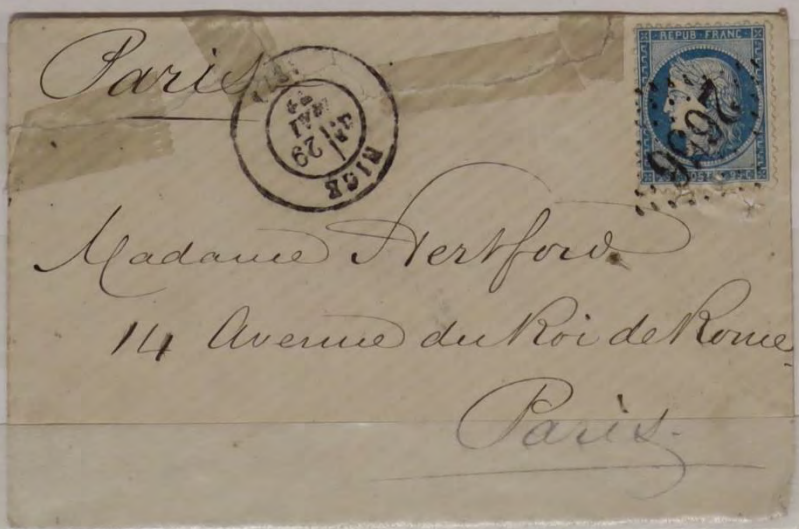 Paris
29
MAI
NICE
REPUB. FRANC.
2656
Madame Hertford
14 Avenue du Roi de Rome
Paris.